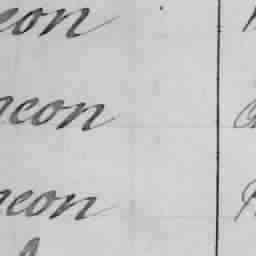 eon
neon
neon